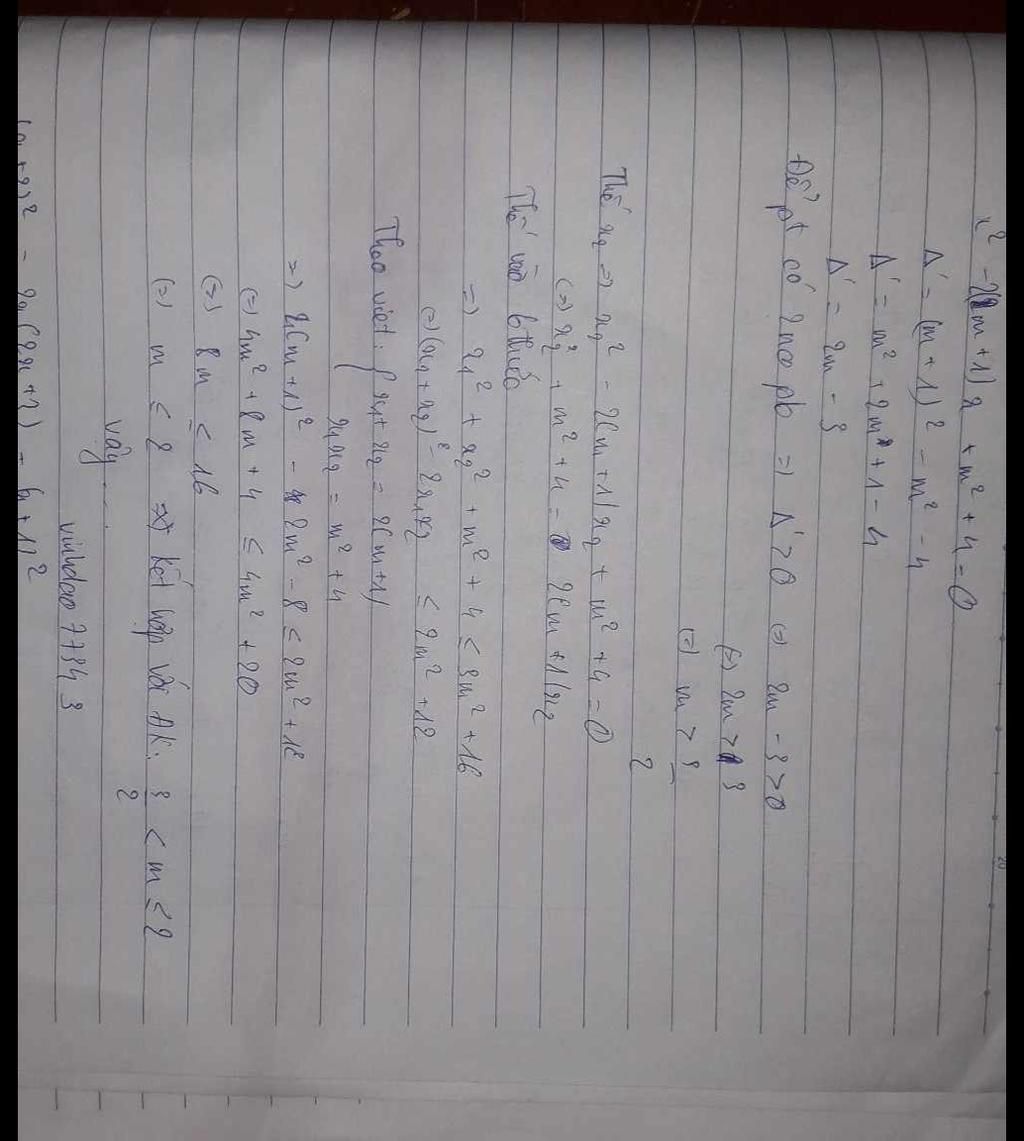 x² - 2(m+1)x + m² + 4 = 0
Δ' = (m+1)² - m² - 4
Δ' = m² + 2m + 1 - 4
Δ' = 2m - 3
Để pt có 2no pb => Δ' > 0 (=) 2m - 3 > 0
(=) 2m > 3
(=) m > 3/2
Thế x₂ => x₂² - 2(m+1)x₂ + m² + 4 = 0
(=) x₂² + m² + 4 = 2(m+1)x₂
Thế vào bthức
=) x₁² + x₂² + m² + 4 ≤ 3m² + 16
(=) (x₁ + x₂)² - 2x₁x₂ ≤ 2m² + 12
Theo viet: { x₁ + x₂ = 2(m+1)
x₁x₂ = m² + 4
=) 2(m+1)² - 2m² - 8 ≤ 2m² + 12
(=) 4m² + 8m + 4 ≤ 4m² + 20
(=) 8m ≤ 16
(=) m ≤ 2 => kết hợp với ĐK: 3/2 < m ≤ 2
Vậy ....
vinhdao7734 3